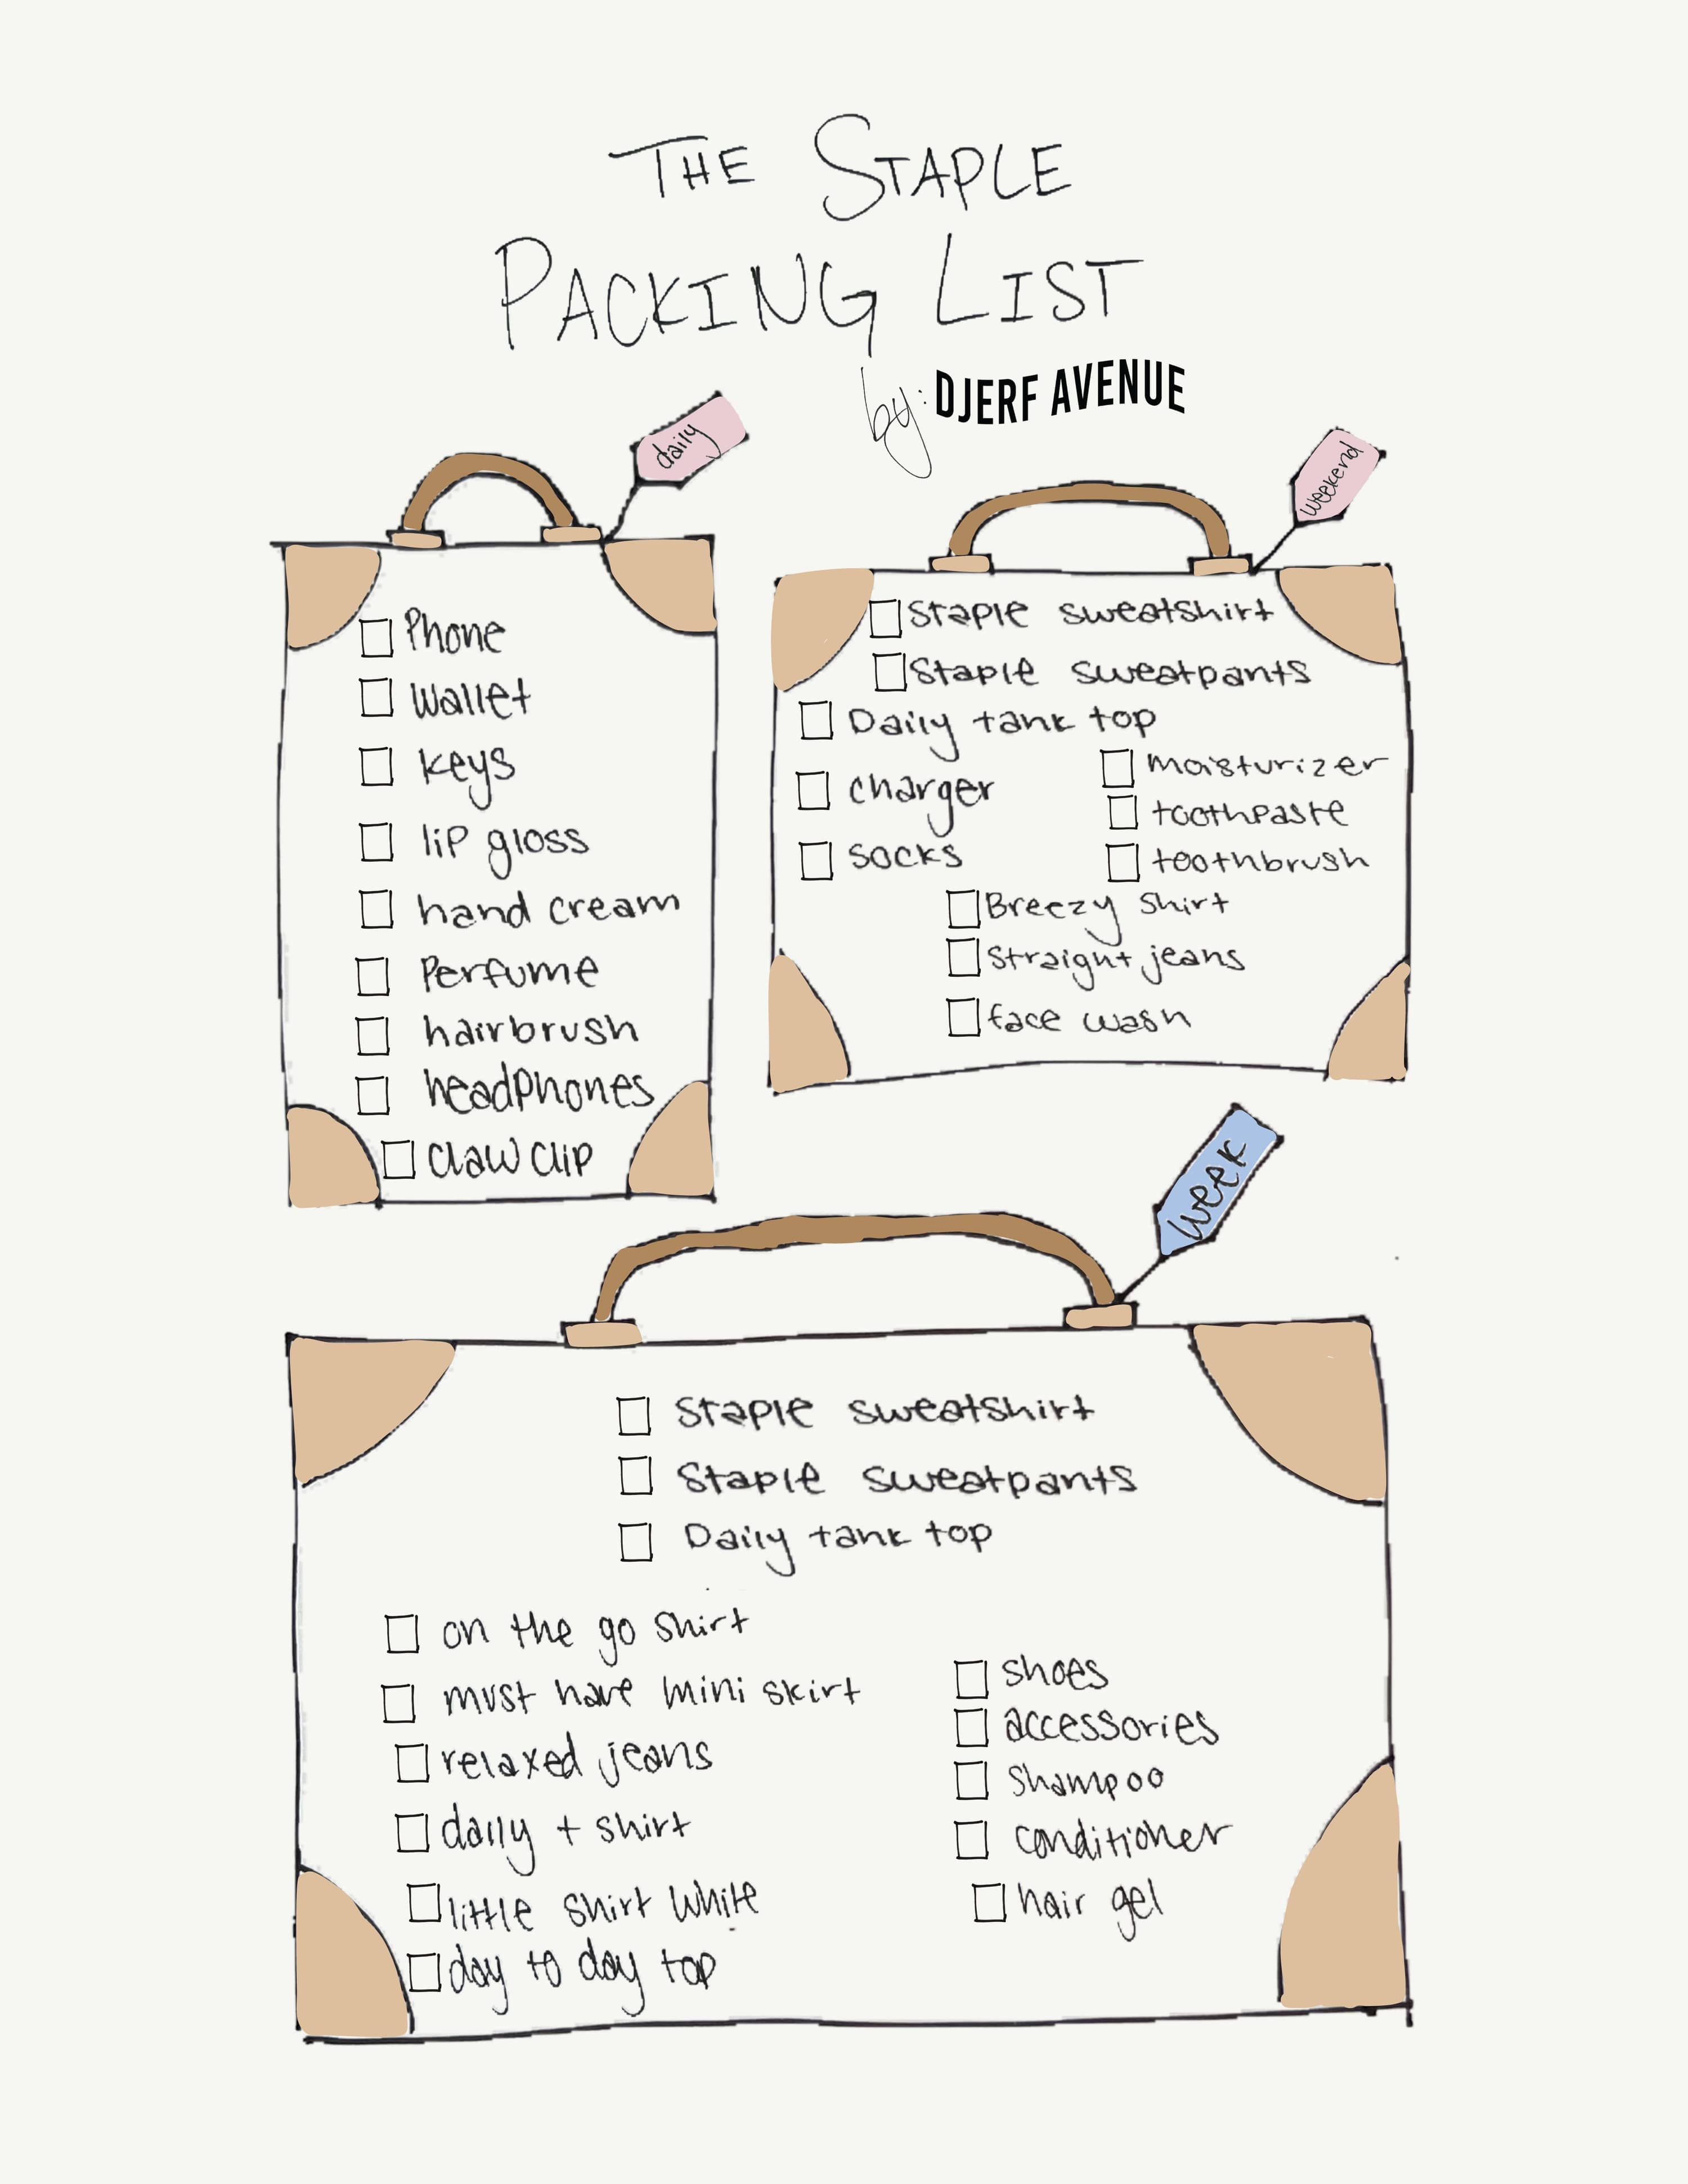 THE STAPLE
PACKING LIST
by: DJERF AVENUE
daily
Phone
wallet
keys
lip gloss
hand cream
Perfume
hairbrush
headphones
claw clip
weekend
Staple sweatshirt
Staple sweatpants
Daily tank top
charger
socks
moisturizer
toothpaste
toothbrush
Breezy shirt
Straight jeans
face wash
week
Staple sweatshirt
Staple sweatpants
Daily tank top
on the go shirt
must have mini skirt
relaxed jeans
daily t shirt
little shirt white
day to day top
shoes
accessories
shampoo
conditioner
hair gel